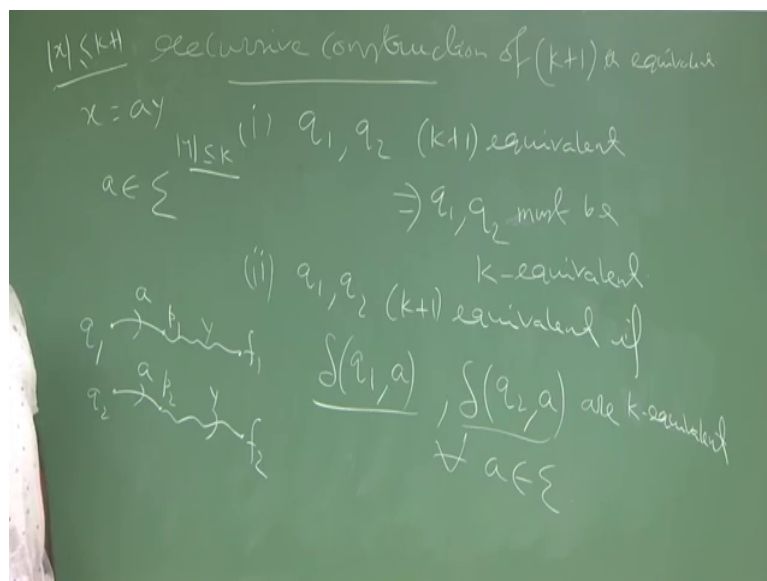 |x| ≤ k+1 recursive construction of (k+1) equivalent
x = ay
|y| ≤ k (i) q₁, q₂ (k+1) equivalent
a ∈ Σ ⇒ q₁, q₂ must be
k-equivalent
(ii) q₁, q₂ (k+1) equivalent if
q₁ a p₁ y f₁
δ(q₁, a) , δ(q₂, a) are k-equivalent
q₂ a p₂ y f₂
∀ a ∈ Σ